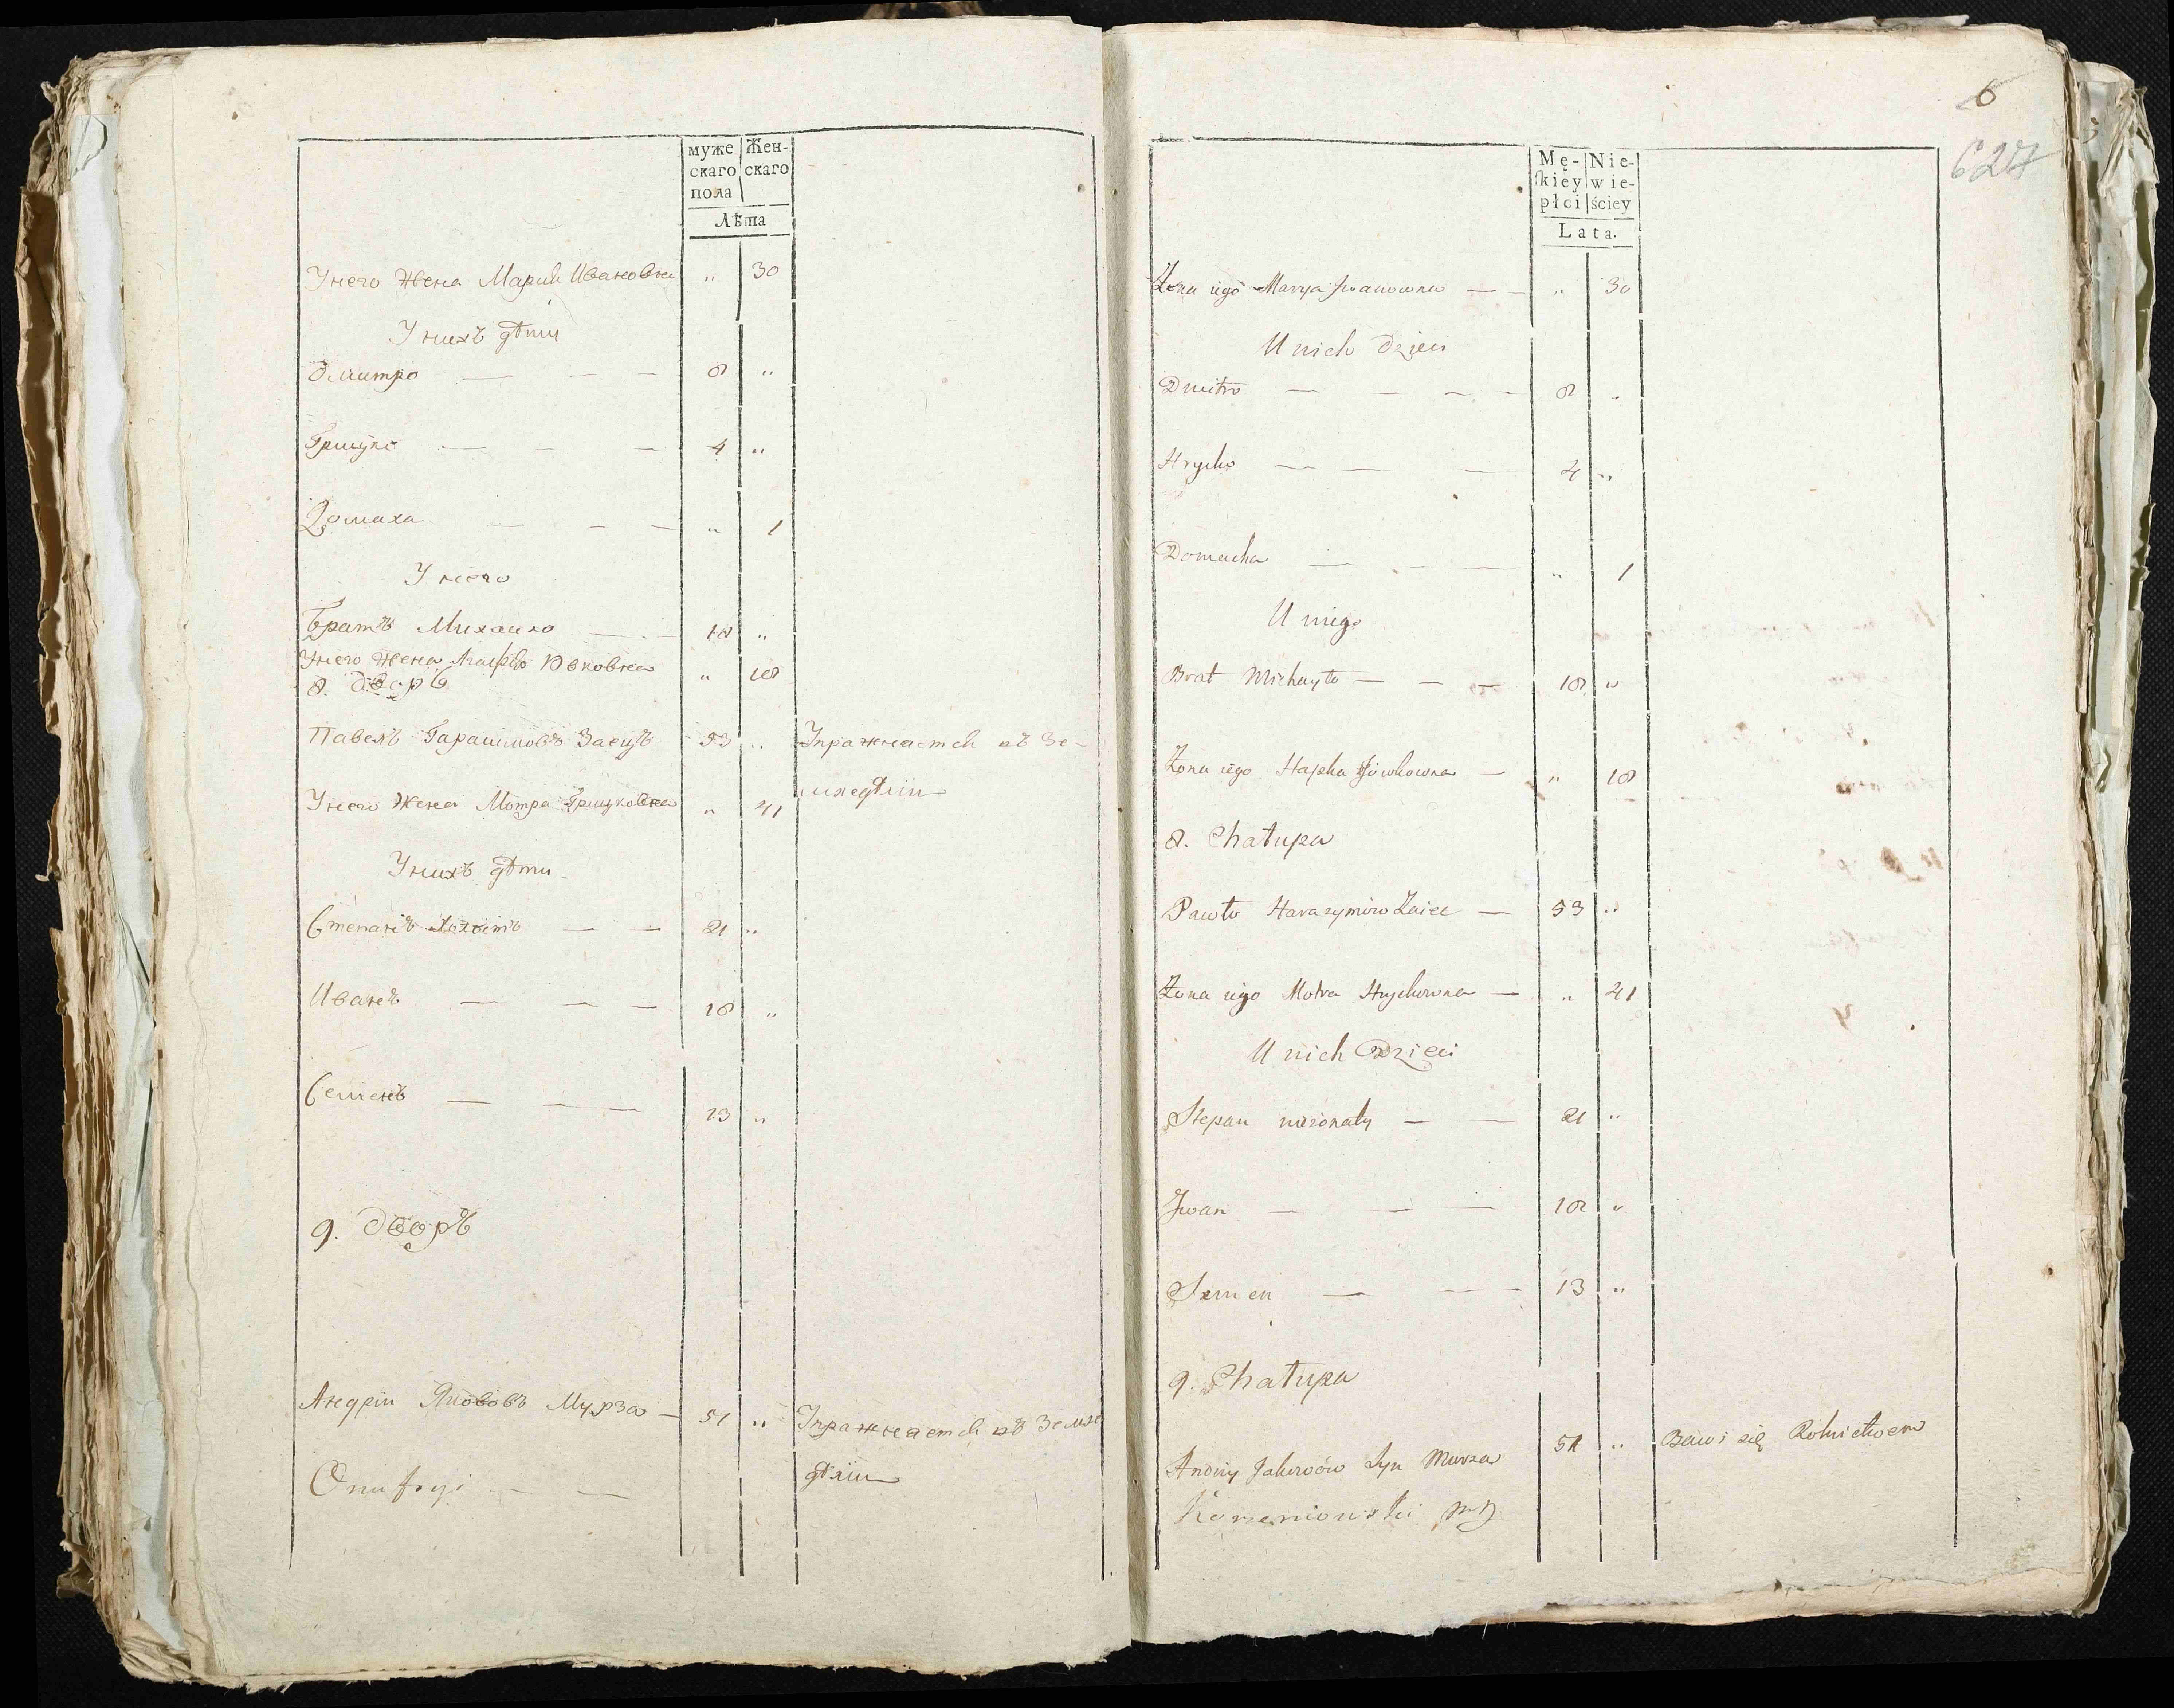 муже
скаго
пола
Жен-
скаго
Лѣта
Унего Жена Мария Ивановна " 30
Унихъ дѣти
Дмитро — — — 8 "
Грицко — — — 4 "
Домаха — — — " 1
Унего
Братъ Михайло — — 18 "
Унего Жена Агафія Ювковна " 18
8. Дворъ
Павелъ Гарасимовъ Заецъ 53 " Упражнается въ Зе-
Унего Жена Мотра Грицковна " 41 мледѣлии
Унихъ дѣти
Степанъ Холостъ — — 21 "
Иванъ — — — 18 "
Семенъ — — — 13 "
9. Дворъ
Андрій Якововъ Мурза — 51 " Упражнается въ Земле
Onufryi — — дѣлии
6
627
Mę-
skiey
płci
Nie-
wie-
ściey
Lata.
Żona iego Marya Iwanowna — — " 30
U nich Dzieci
Dmitro — — — — 8 "
Hrycko — — — 4 "
Domacha — — — " 1
U niego
Brat Michayło — — — 18 "
Żona iego Hapka Jówkowna — " 18
8. Chałupa
Pawło Harasymów Zaiec — 53 "
Żona iego Motra Hryckowna — " 41
U nich Dzieci
Stepan nieżonaty — — 21 "
Iwan — — — 18 "
Semen — — — 13 "
9. Chałupa
Andriy Jakowów Syn Murza 51 " Bawi się Rolnictwem
Korzeniowski mp